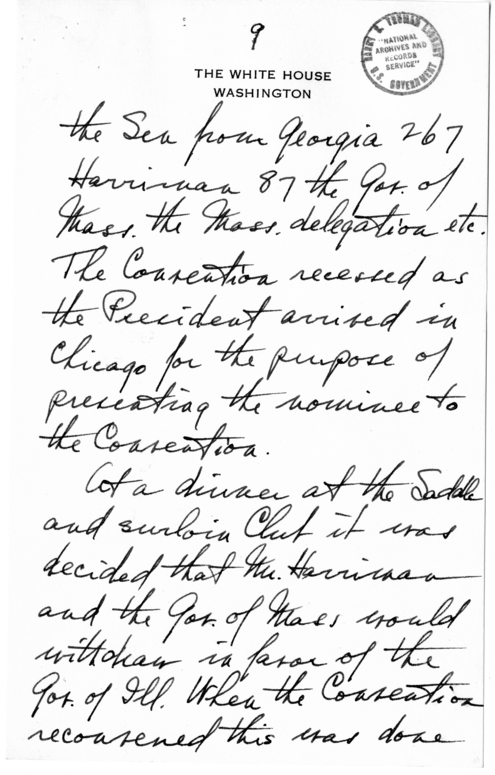 9
HARRY S. TRUMAN LIBRARY
"NATIONAL
ARCHIVES AND
RECORDS
SERVICE"
U.S. GOVERNMENT
THE WHITE HOUSE
WASHINGTON
the Sen from Georgia 267
Harriman 87 the Gov. of
Mass. the Mass. delegation etc.
The Convention recessed as
the President arrived in
Chicago for the purpose of
presenting the nominee to
the Convention.
At a dinner at the Saddle
and surloin Club it was
decided that Mr. Harriman
and the Gov. of Mass would
withdraw in favor of the
Gov. of Ill. When the Convention
reconvened this was done